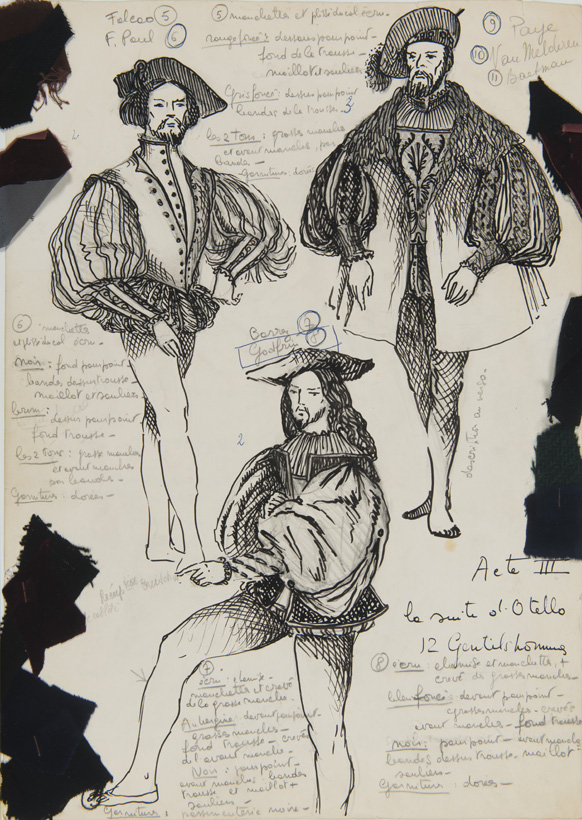 Falcao ⑤
F. Paul ⑥
⑤ manchettes et plissé du col écru -
rouge foncé : dessous pourpoint -
fond de la trousse -
maillot et souliers
Gris foncé : dessus pourpoint
bandes de la trousse - 3
les 2 tons : grosses manches
et avant manches, par
bandes -
Garniture : dorée
⑨ Paye
⑩ Van Melderen
⑪ Baetman
2
⑥ manchettes
et plissé du col écru -
noir : fond pourpoint -
bandes dessus trousse -
maillot et souliers -
brun : dessus pourpoint
fond trousse -
les 2 tons : grosses manches
et avant manches
par bandes -
Garniture : dorée -
Barry ⑦
Godfrin ⑧
2
description au verso -
Acte III
la suite d'Otello
12 Gentilshommes
⑦
écru : chemise -
manchettes et crevé
de la grosse manche -
Aubergine : devant pourpoint -
grosses manches -
fond trousse - crevé
de l'avant manche -
Noir : pourpoint -
avant manches - bandes
trousse et maillot +
souliers -
Garniture : passementerie noire -
⑧ écru : chemise et manchettes, +
crevé de grosses manches -
bleu foncé : devant pourpoint -
grosses manches - crevés
avant manches - fond trousse
noir : pourpoint - avant manches
bandes dessus trousse - maillot -
souliers -
Garniture : dorée -